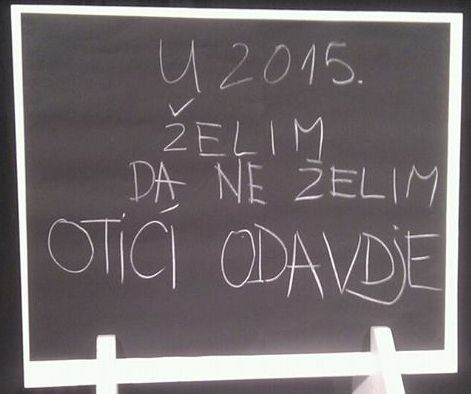 U 2015.
ŽELIM
DA NE ŽELIM
OTIĆI ODAVDjE